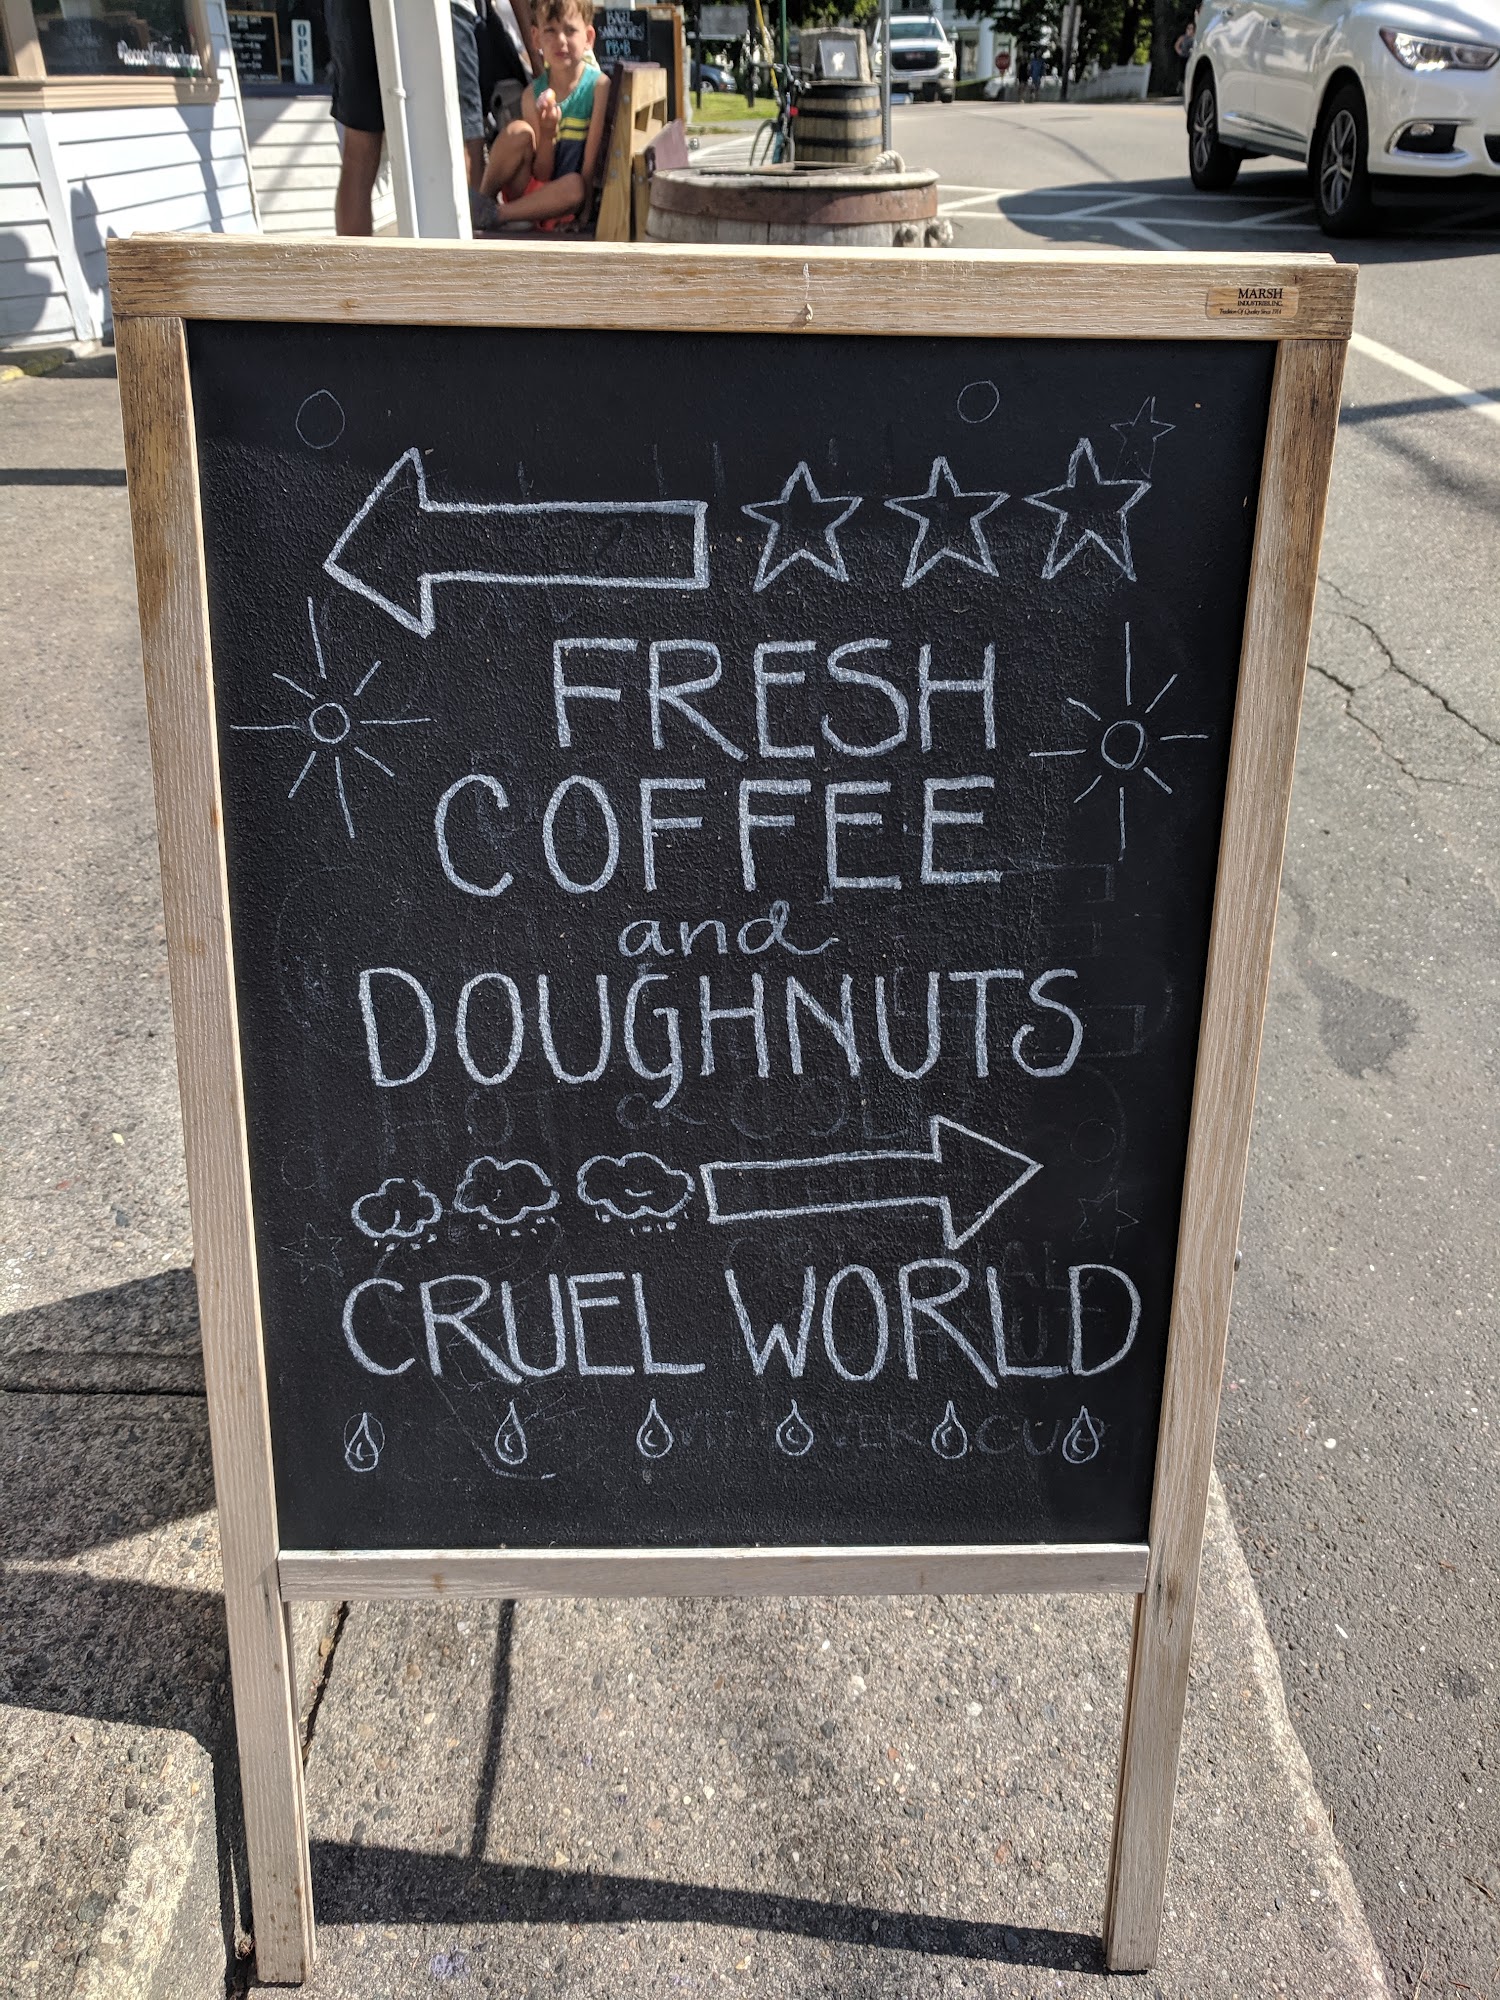 OPEN
BAGEL
SANDWICHES
PB+B
MARSH
INDUSTRIES, INC.
Tradition Of Quality Since 1914
FRESH
COFFEE
and
DOUGHNUTS
HOT OR COLD
CRUEL WORLD
CUP